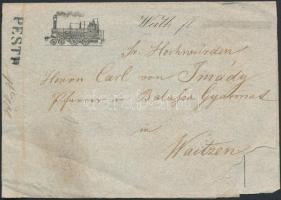 PESTH
Werth f
Sr. Hochwürden
Herrn Carl von Imády
Pfarrer in Balassa Gyarmat
in
Waitzen